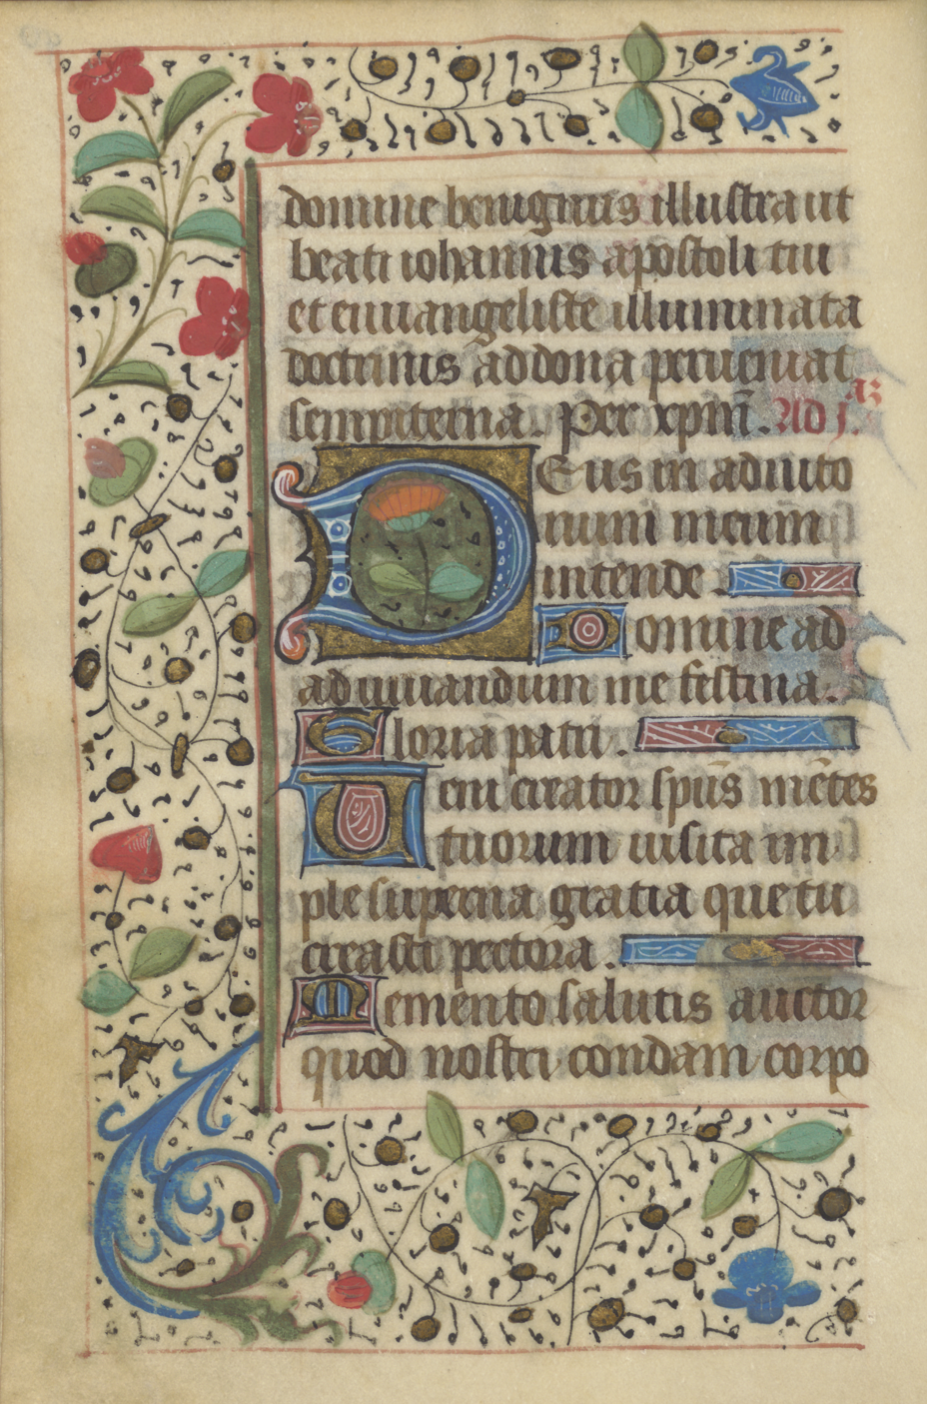 domine benignus illustra ut
beati iohannis apostoli tui
et euuangeliste illuminata
doctrinis ad dona perueniat
sempiterna. Per xpm̄. Ad j.
Deus in adiuto
rium meum
intende.
Domine ad
adiuuandum me festina.
Gloria patri.
Ueni creator spūs mētes
tuorum uisita im
ple superna gratia que tu
creasti pectora.
Memento salutis auctor
quod nostri condam corpo